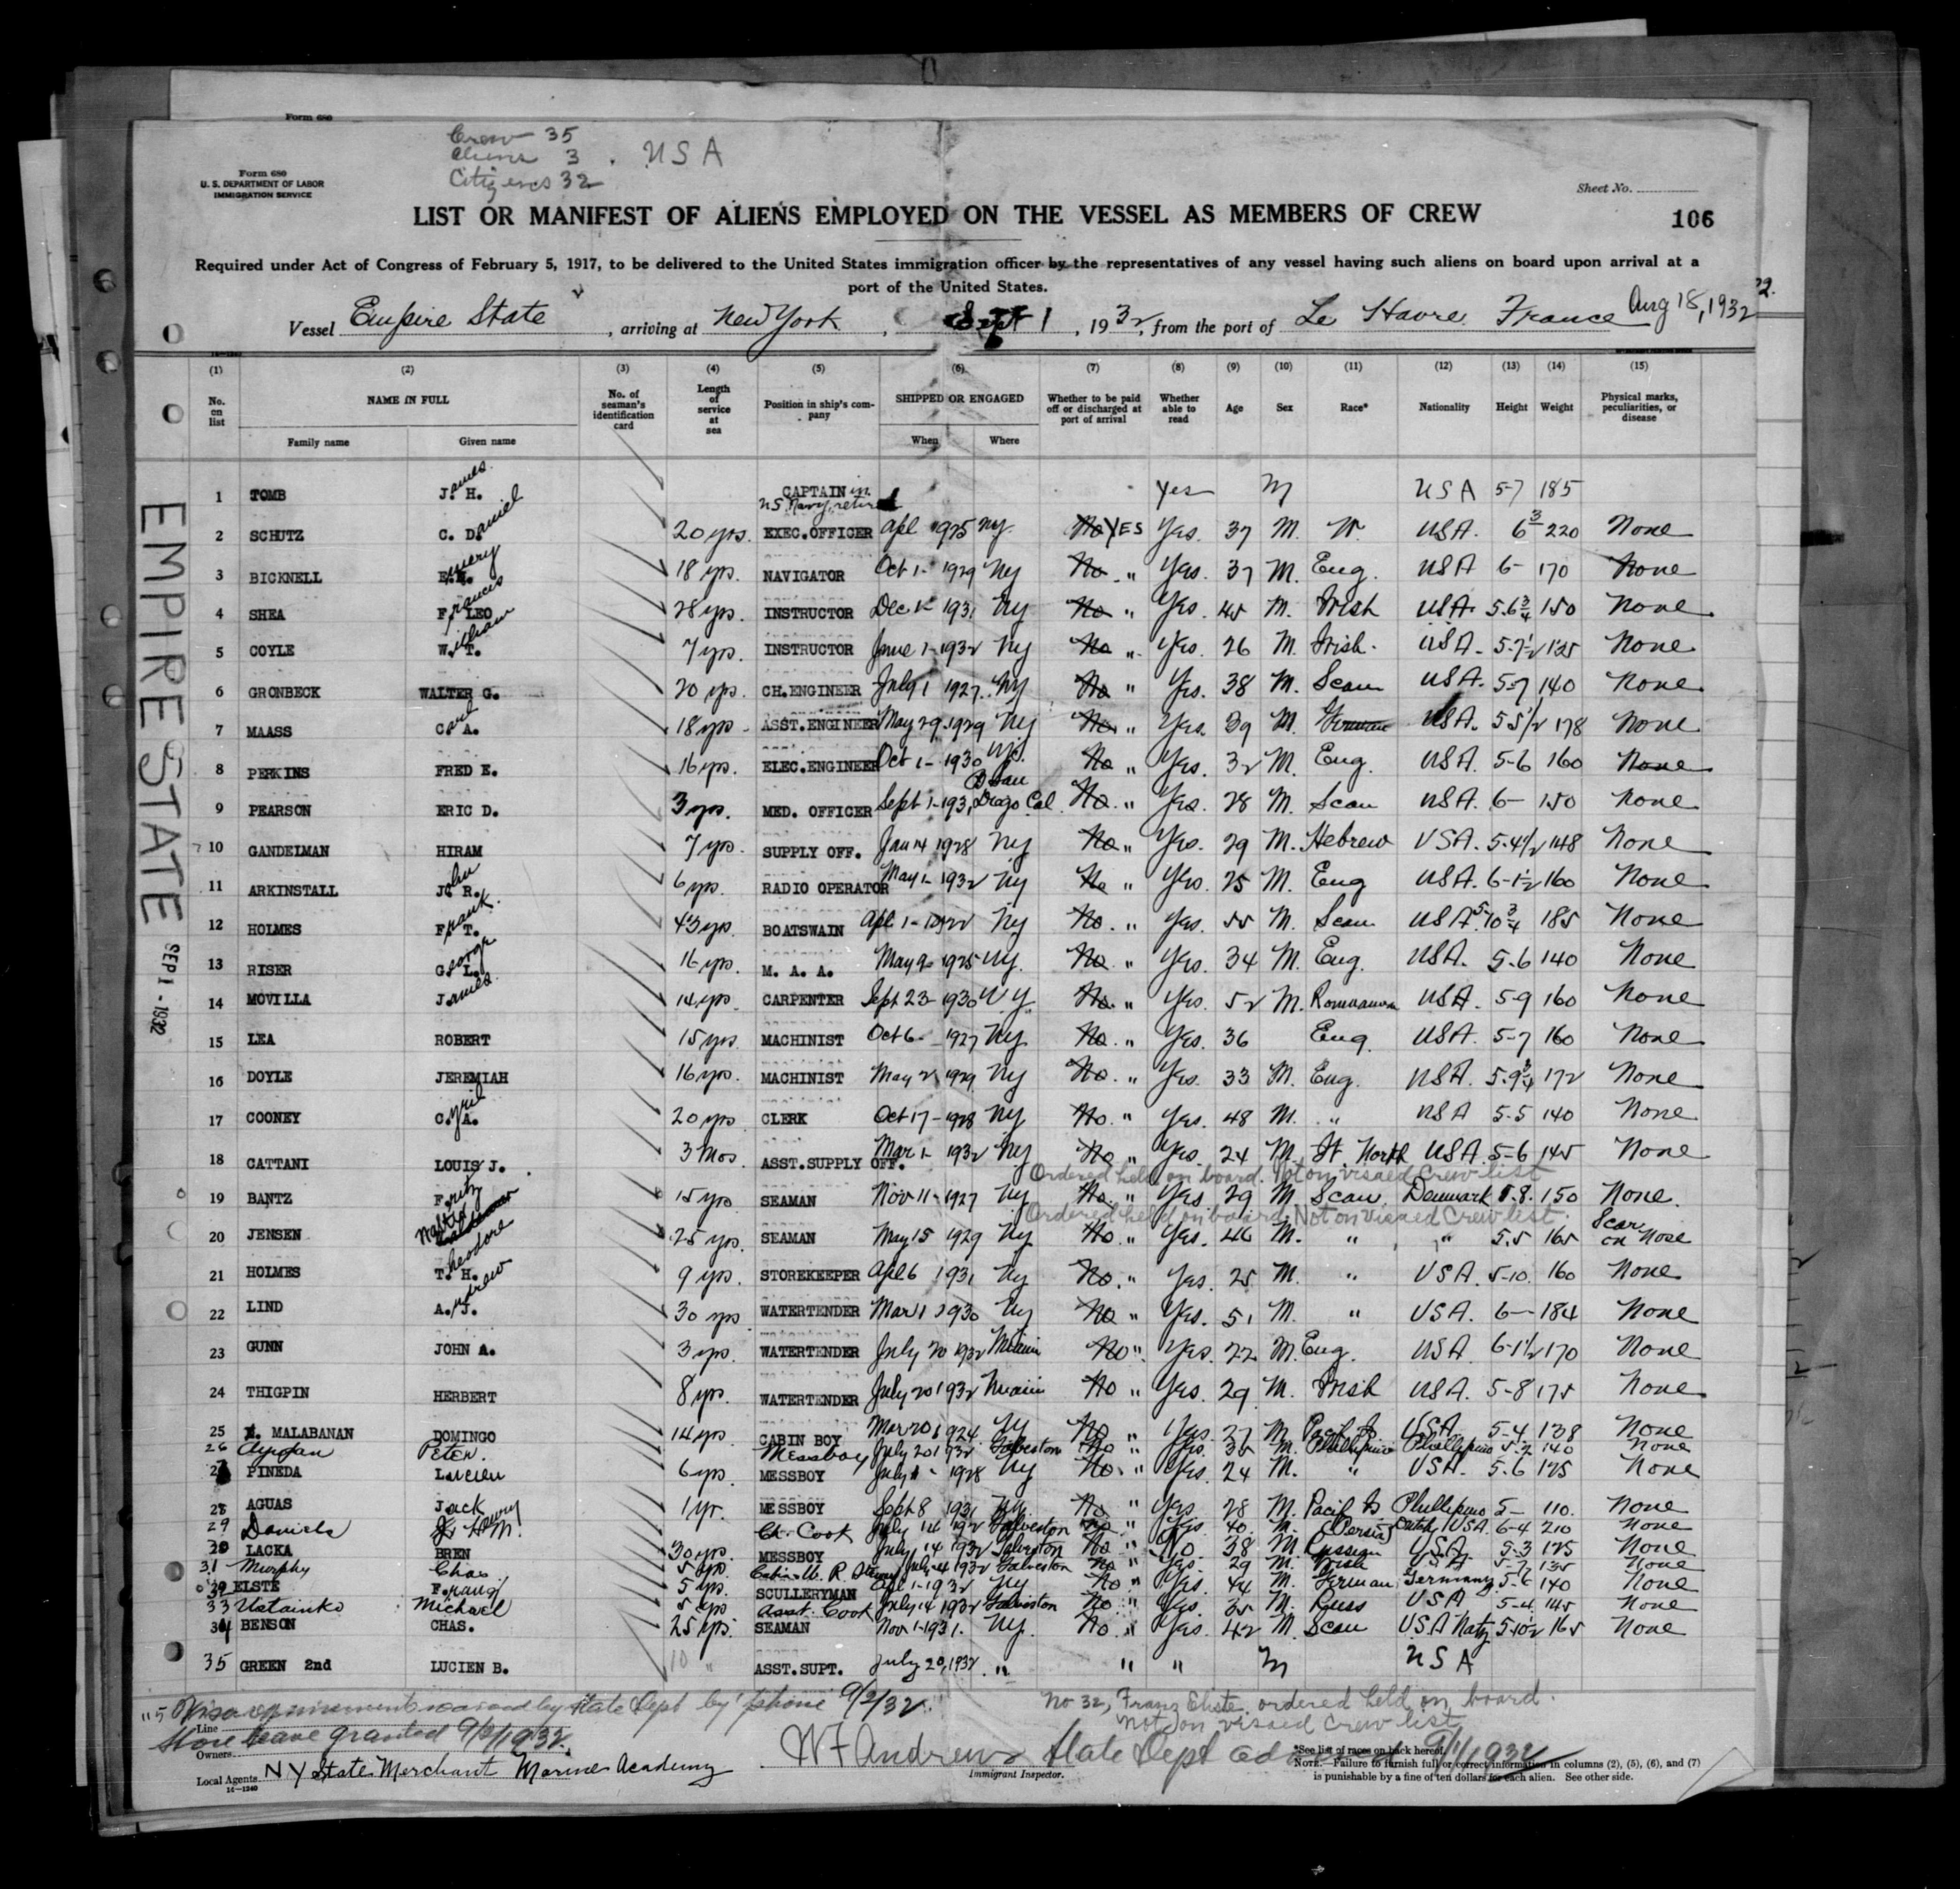 Form 680
Crew 35
Aliens 3 . USA
Citizens 32
Form 680
U. S. DEPARTMENT OF LABOR
IMMIGRATION SERVICE
Sheet No.
LIST OR MANIFEST OF ALIENS EMPLOYED ON THE VESSEL AS MEMBERS OF CREW
106
Required under Act of Congress of February 5, 1917, to be delivered to the United States immigration officer by the representatives of any vessel having such aliens on board upon arrival at a
port of the United States.
Vessel Empire State, arriving at New York, Sept 1, 1932, from the port of Le Havre France Aug 18, 1932
(1) (2) (3) (4) (5) (6) (7) (8) (9) (10) (11) (12) (13) (14) (15)
No. on list NAME IN FULL No. of seaman's identification card Length of service at sea Position in ship's company SHIPPED OR ENGAGED Whether to be paid off or discharged at port of arrival Whether able to read Age Sex Race* Nationality Height Weight Physical marks, peculiarities, or disease
Family name Given name When Where
EMPIRE STATE
SEP 1 - 1932
1 TOMB James H. CAPTAIN in US Navy, retired Yes M USA 5-7 185
2 SCHUTZ C. Daniel 20 yrs. EXEC.OFFICER Apl 1925 NY. No YES Yes. 37 M. USA. 6 3 220 None
3 BICKNELL Emery 18 yrs. NAVIGATOR Oct 1- 1929 NY No " Yes. 37 M. Eng. USA 6- 170 None
4 SHEA Francis LEO 28 yrs. INSTRUCTOR Dec 1- 1931 NY No " Yes. 45 M. Irish USA. 5-6 3/4 150 None
5 COYLE William T. 7 yrs. INSTRUCTOR June 1-1932 NY No " Yes. 26 M. Irish. USA. 5-7 1/2 135 None
6 GRONBECK WALTER G. 20 yrs. CH.ENGINEER July 1 1927. NY No " Yes. 38 M. Scan USA. 5-7 140 None
7 MAASS Carl A. 18 yrs. ASST.ENGINEER May 29-1929 NY No " Yes. 39 M. German USA. 5-5 1/2 178 None
8 PERKINS FRED E. 16 yrs. ELEC.ENGINEER Oct 1- 1930 NY. No " Yes. 32 M. Eng. USA. 5-6 160 None
9 PEARSON ERIC D. 3 yrs. MED. OFFICER Sept 1-1931 San Diego Cal No " Yes. 28 M. Scan USA. 6- 150 None
10 GANDELMAN HIRAM 7 yrs. SUPPLY OFF. Jan 14 1928 NY No " Yes. 29 M. Hebrew USA. 5-4 1/2 148 None
11 ARKINSTALL John R. 6 yrs. RADIO OPERATOR May 1- 1932 NY No " Yes. 25 M. Eng USA. 6-1 1/2 160 None
12 HOLMES Frank T. 43 yrs. BOATSWAIN Apl 1- NY No. " Yes. 55 M. Scan USA 5-10 3/4 185 None
13 RISER George L. 16 yrs. M. A. A. May 9- 1925 NY. No. " Yes. 34 M. Eng. USA. 5-6 140 None
14 MOVILLA James 14 yrs. CARPENTER Sept 23- 1930 N.Y. No. " Yes. 52 M. USA. 5-9 160 None
15 LEA ROBERT 15 yrs. MACHINIST Oct 6- 1927 NY. No. " Yes. 36 Eng. USA. 5-7 160 None
16 DOYLE JEREMIAH 16 yrs. MACHINIST May 2 1929 NY No. " Yes. 33 M. Eng. USA. 5-9 3/4 172 None
17 COONEY Cyril A. 20 yrs CLERK Oct 17- 1928 NY No. " Yes. 48 M. " USA 5-5 140 None
18 CATTANI LOUIS J. 3 Mos ASST.SUPPLY OFF. Mar 1- 1932 NY No " Yes. 24 M. It. North USA 5-6 145 None
Ordered held on board. Not on visaed Crew list
19 BANTZ Fritz 15 yrs SEAMAN Nov 11- 1927 NY No. " Yes 29 M Scan. Denmark 5-8. 150 None.
Ordered held on board. Not on visaed Crew list.
20 JENSEN 25 yrs. SEAMAN May 15 1929 NY No. " Yes. 46 M. " " 5.5 165 Scar on Nose
21 HOLMES Theodore H. 9 yrs. STOREKEEPER Apl 6 1931 NY No. " Yes. 25 M. " USA. 5-10. 160 None
22 LIND Andrew J. 30 yrs WATERTENDER Mar 1 1930 NY No " Yes. 51 M. " USA. 6- 184 None
23 GUNN JOHN A. 3 yrs. WATERTENDER July 20 1932 Miami No ". Yes. 22 M. Eng. USA 6-1 1/2 170 None
24 THIGPIN HERBERT 8 yrs. WATERTENDER July 20 1932 Miami No " Yes. 29 M. Irish USA. 5-8 175 None
25 MALABANAN DOMINGO 14 yrs CABIN BOY Mar 20 1924 NY No " Yes. 27 M. Pacif Is USA 5-4 138 None
26 Peter. Messboy July 20 1932 Galveston No " Yes. 35 M. Phillipino Phillipino 5-2 140 None
27 PINEDA Lucien 6 yrs MESSBOY July 1- 1928 NY No. " Yes. 24 M. " USA. 5.6 125 None
28 AGUAS Jack 1 yr. MESSBOY Sept 8 1931 NY. No " Yes 28 M. Pacif Is Phillipino 5- 110. None
29 Daniels Ch. Cook July 14 1932 Galveston No " Yes. 40. M. USA. 6-4 210 None
30 LACKA BREN 30 yrs. MESSBOY July 14 1932 Galveston No " No. 38 M. Russian USA. 5-3 125 None
31 Murphy Chas. 5 yrs. July 14 1932 Galveston No " Yes. 29 M. Irish USA 5-7 135 None
32 ELSTE Franz 5 yrs. SCULLERYMAN Apl 1-1932 NY No " Yes. 44 M. German Germany 5-6 140 None
33 Ustainko Michael 5 yrs Asst. Cook July 14 1932 Galveston No. " Yes. 35 M. Russ USA 5-4 145 None
34 BENSON CHAS. 25 yrs. SEAMAN Nov 1-1931. NY. No. " Yes. 42 M. Scan USA Natz 5-10 1/2 165 None
35 GREEN 2nd LUCIEN B. 10 " ASST.SUPT. July 20, 1932 " " " M USA
Visa requirements waived by State Dept by 'phone 9/2/32.
No 32, Franz Elste. ordered held on board.
Not on visaed Crew list
Line
Shore leave granted 9/2/1932.
Owners
W F Andrews State Dept 9/1/1932
Immigrant Inspector.
Local Agents N Y State Merchant Marine Academy
14-1240
*See list of races on back hereof.
NOTE.—Failure to furnish full or correct information in columns (2), (5), (6), and (7)
is punishable by a fine of ten dollars for each alien. See other side.